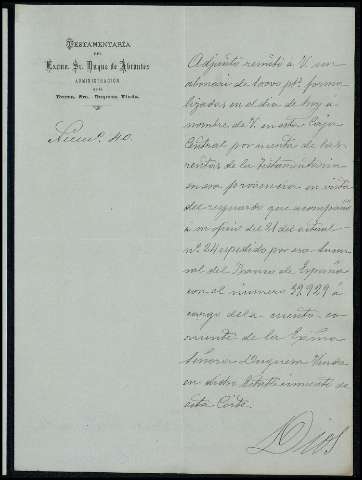 TESTAMENTARÍA
DEL
Excmo. Sr. Duque de Abrantes
ADMINISTRACIÓN
DE LA
Excma. Sra. Duquesa Viuda.
Núm.º 40.
Adjunto remito a V. un
abonaré de 10000 pts. forma
lizadas en el dia de hoy a
nombre de V. en esta Caja
Central por cuenta de las
rentas de la Testamentaria
en esa provincia en vista
del resguardo que acompaña
a su oficio del 21 del actual
nº 24 espedido por esa Sucur
sal del Banco de España
con el número 32.929 á
cargo de la cuenta co
rriente de la Exma
Señora Duquesa Viuda
en dicho Establecimiento de
esta Corte.
Dios